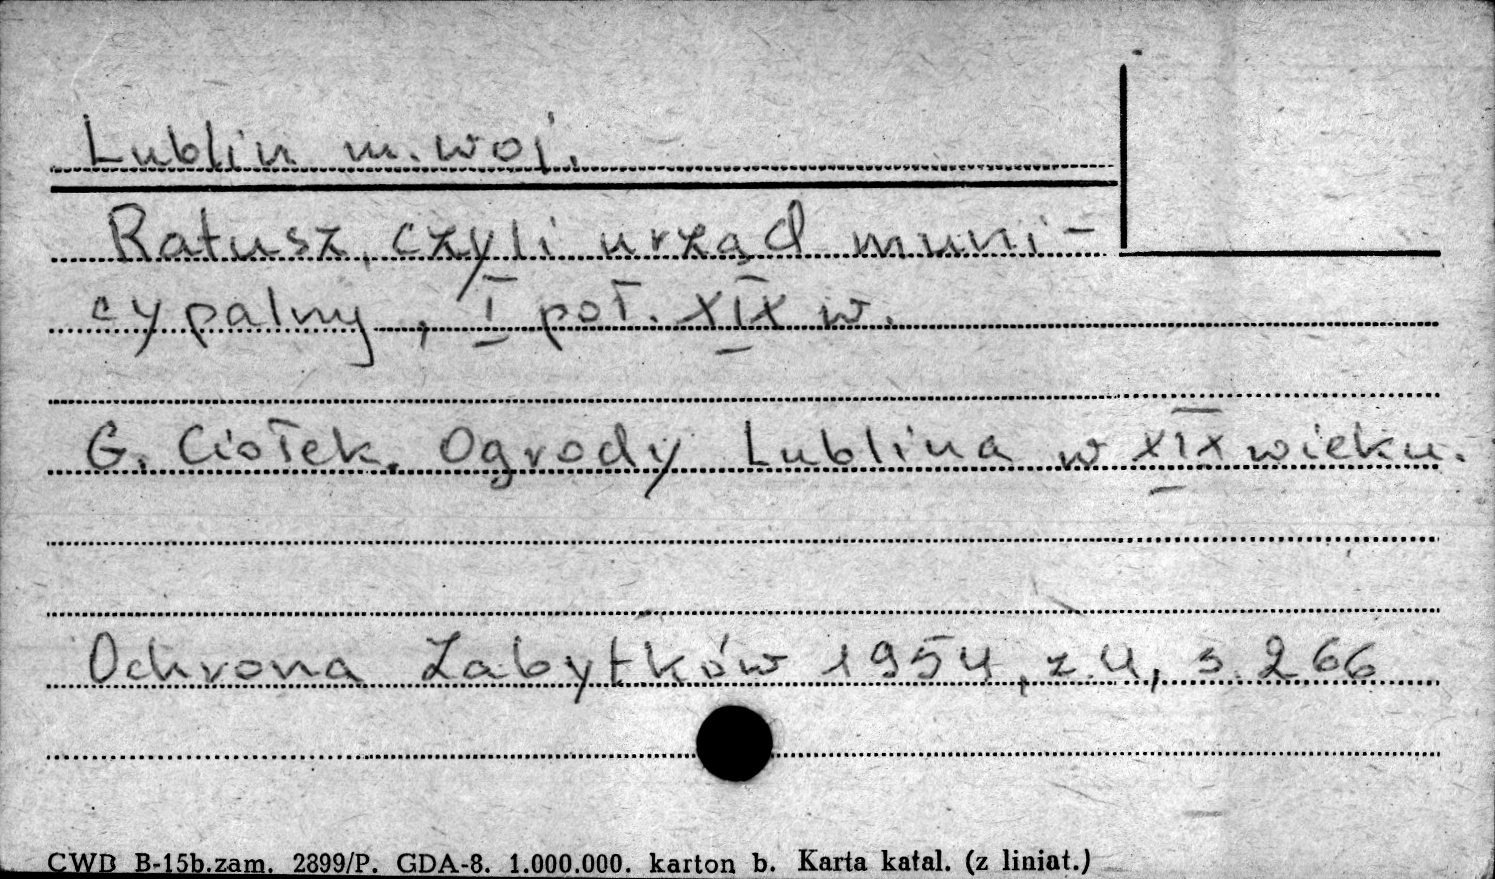 Lublin m. woj.
Ratusz, czyli urząd muni-
cypalny, I poł. XIX w.
G. Ciołek. Ogrody Lublina w XIX wieku.
Ochrona Zabytków 1954, z. 4, s. 266
CWD B-15b.zam. 2899/P. GDA-8. 1.000.000. karton b. Karta katal. (z liniat.)